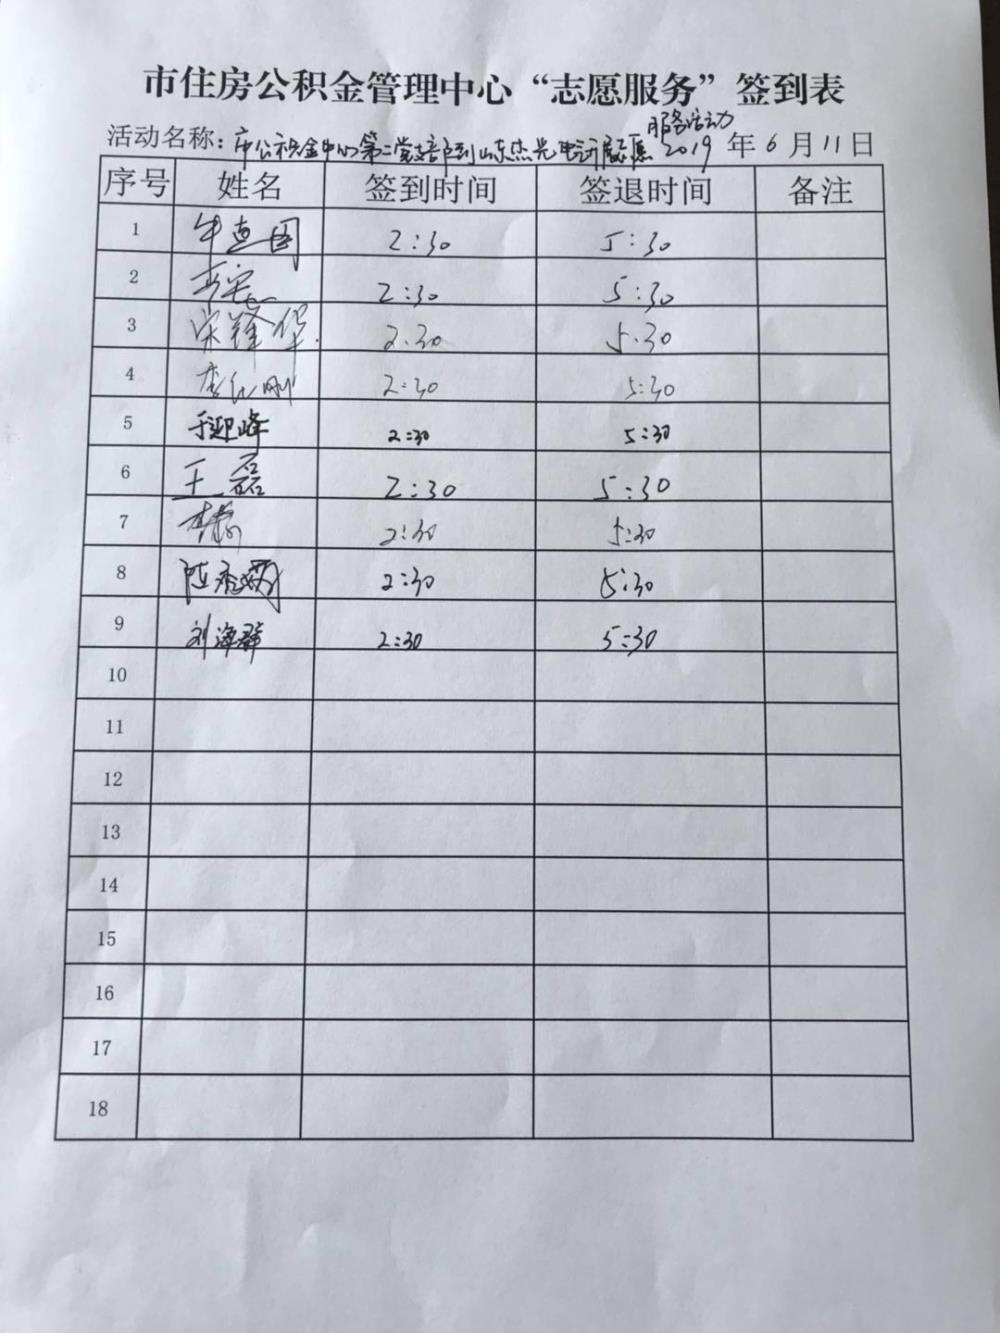 市住房公积金管理中心“志愿服务”签到表
服务活动
活动名称：市公积金中心第二党支部到山东杰光电子开展志愿 2019 年 6 月 11 日
序号 姓名 签到时间 签退时间 备注
1 2:30 5:30
2 2:30 5:30
3 宋锋华 2:30 5:30
4 李红刚 2:30 5:30
5 于迎峰 2:30 5:30
6 王磊 2:30 5:30
7 2:30 5:30
8 2:30 5:30
9 刘海群 2:30 5:30
10
11
12
13
14
15
16
17
18